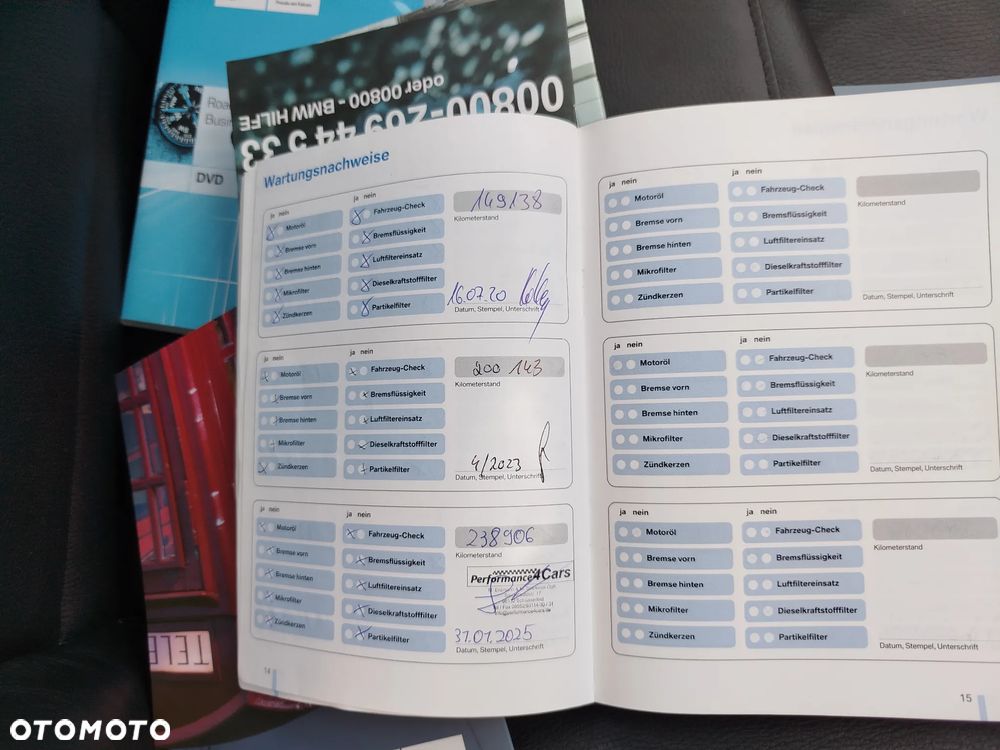 DVD
oder 00800 - BMW HILFE
Wartungsnachweise
ja nein
ja nein
149138
Kilometerstand
Motoröl
Bremse vorn
Bremse hinten
Mikrofilter
Zündkerzen
Fahrzeug-Check
Bremsflüssigkeit
Luftfiltereinsatz
Dieselkraftstofffilter
Partikelfilter
16.07.20
Datum, Stempel, Unterschrift
ja nein
ja nein
200 143
Kilometerstand
Motoröl
Bremse vorn
Bremse hinten
Mikrofilter
Zündkerzen
Fahrzeug-Check
Bremsflüssigkeit
Luftfiltereinsatz
Dieselkraftstofffilter
Partikelfilter
4/2023
Datum, Stempel, Unterschrift
ja nein
ja nein
238906
Kilometerstand
Motoröl
Bremse vorn
Bremse hinten
Mikrofilter
Zündkerzen
Fahrzeug-Check
Bremsflüssigkeit
Luftfiltereinsatz
Dieselkraftstofffilter
Partikelfilter
Performance4Cars
31.01.2025
Datum, Stempel, Unterschrift
14
ja nein
ja nein
Kilometerstand
Motoröl
Bremse vorn
Bremse hinten
Mikrofilter
Zündkerzen
Fahrzeug-Check
Bremsflüssigkeit
Luftfiltereinsatz
Dieselkraftstofffilter
Partikelfilter
Datum, Stempel, Unterschrift
ja nein
ja nein
Kilometerstand
Motoröl
Bremse vorn
Bremse hinten
Mikrofilter
Zündkerzen
Fahrzeug-Check
Bremsflüssigkeit
Luftfiltereinsatz
Dieselkraftstofffilter
Partikelfilter
Datum, Stempel, Unterschrift
ja nein
ja nein
Kilometerstand
Motoröl
Bremse vorn
Bremse hinten
Mikrofilter
Zündkerzen
Fahrzeug-Check
Bremsflüssigkeit
Luftfiltereinsatz
Dieselkraftstofffilter
Partikelfilter
Datum, Stempel, Unterschrift
15
OTOMOTO